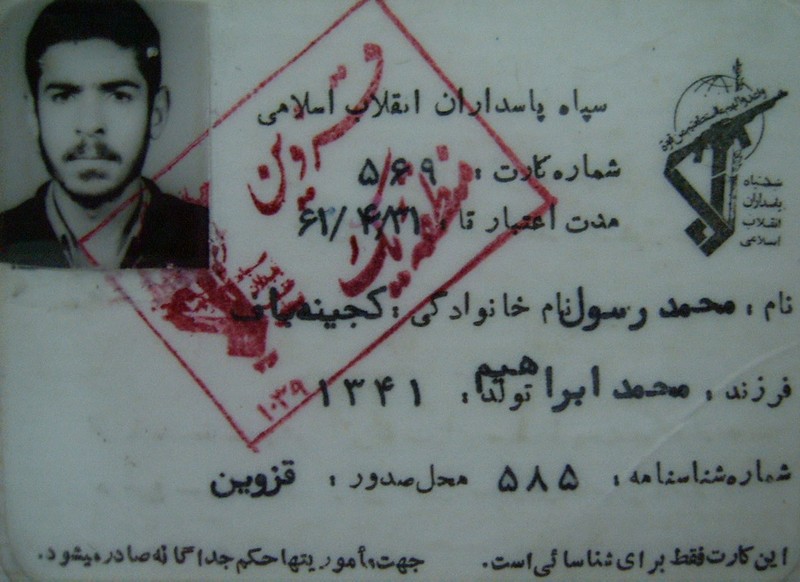 سپاه پاسداران انقلاب اسلامی
شماره کارت : ۵/۶۹
مدت اعتبار تا : ۶۱/۴/۳۱
سپاه
پاسداران
انقلاب
اسلامی
قزوین
منطقه یک
نام : محمد رسول نام خانوادگی : گجینه‌باف
فرزند : محمد ابراهیم تولد : ۱۳۴۱
۱۰۳۹
شماره شناسنامه : ۵۸۵ محل صدور : قزوین
این کارت فقط برای شناسائی است. جهت مأموریتها حکم جداگانه صادر میشود.